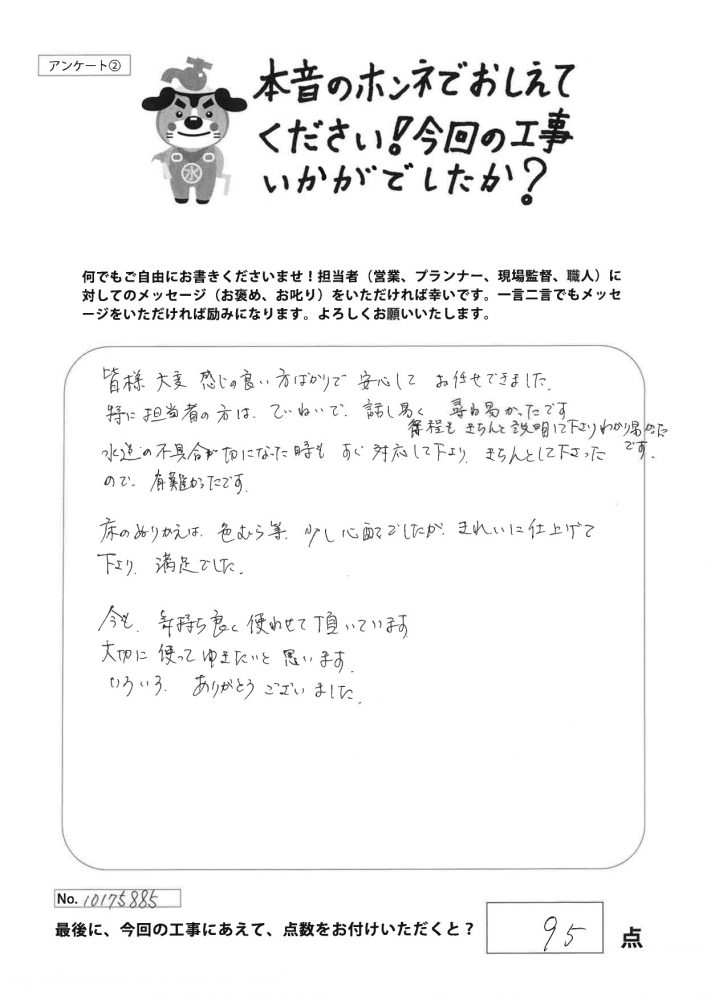 アンケート②
本音のホンネでおしえて
ください!今回の工事
いかがでしたか?
水
何でもご自由にお書きくださいませ!担当者(営業、プランナー、現場監督、職人)に
対してのメッセージ(お褒め、お叱り)をいただければ幸いです。一言二言でもメッセ
ージをいただければ励みになります。よろしくお願いいたします。
皆様 大変 感じの良い方ばかりで 安心して お任せできました。
特に担当者の方は、ていねいで、話し易く 尋ね易かったです
行程も きちんと説明して下さりわかり易かった
です。
水道の不具合が切になった時も すぐ対応して下さり、きちんとして下さった
ので、有難かったです。
床のぬりかえは、色むら等、少し心配でしたが、きれいに仕上げて
下さり、満足でした。
今も、気持ち良く使わせて頂いています
大切に使ってゆきたいと思います。
いろいろ、ありがとうございました。
No. 10175885
最後に、今回の工事にあえて、点数をお付けいただくと? 95 点